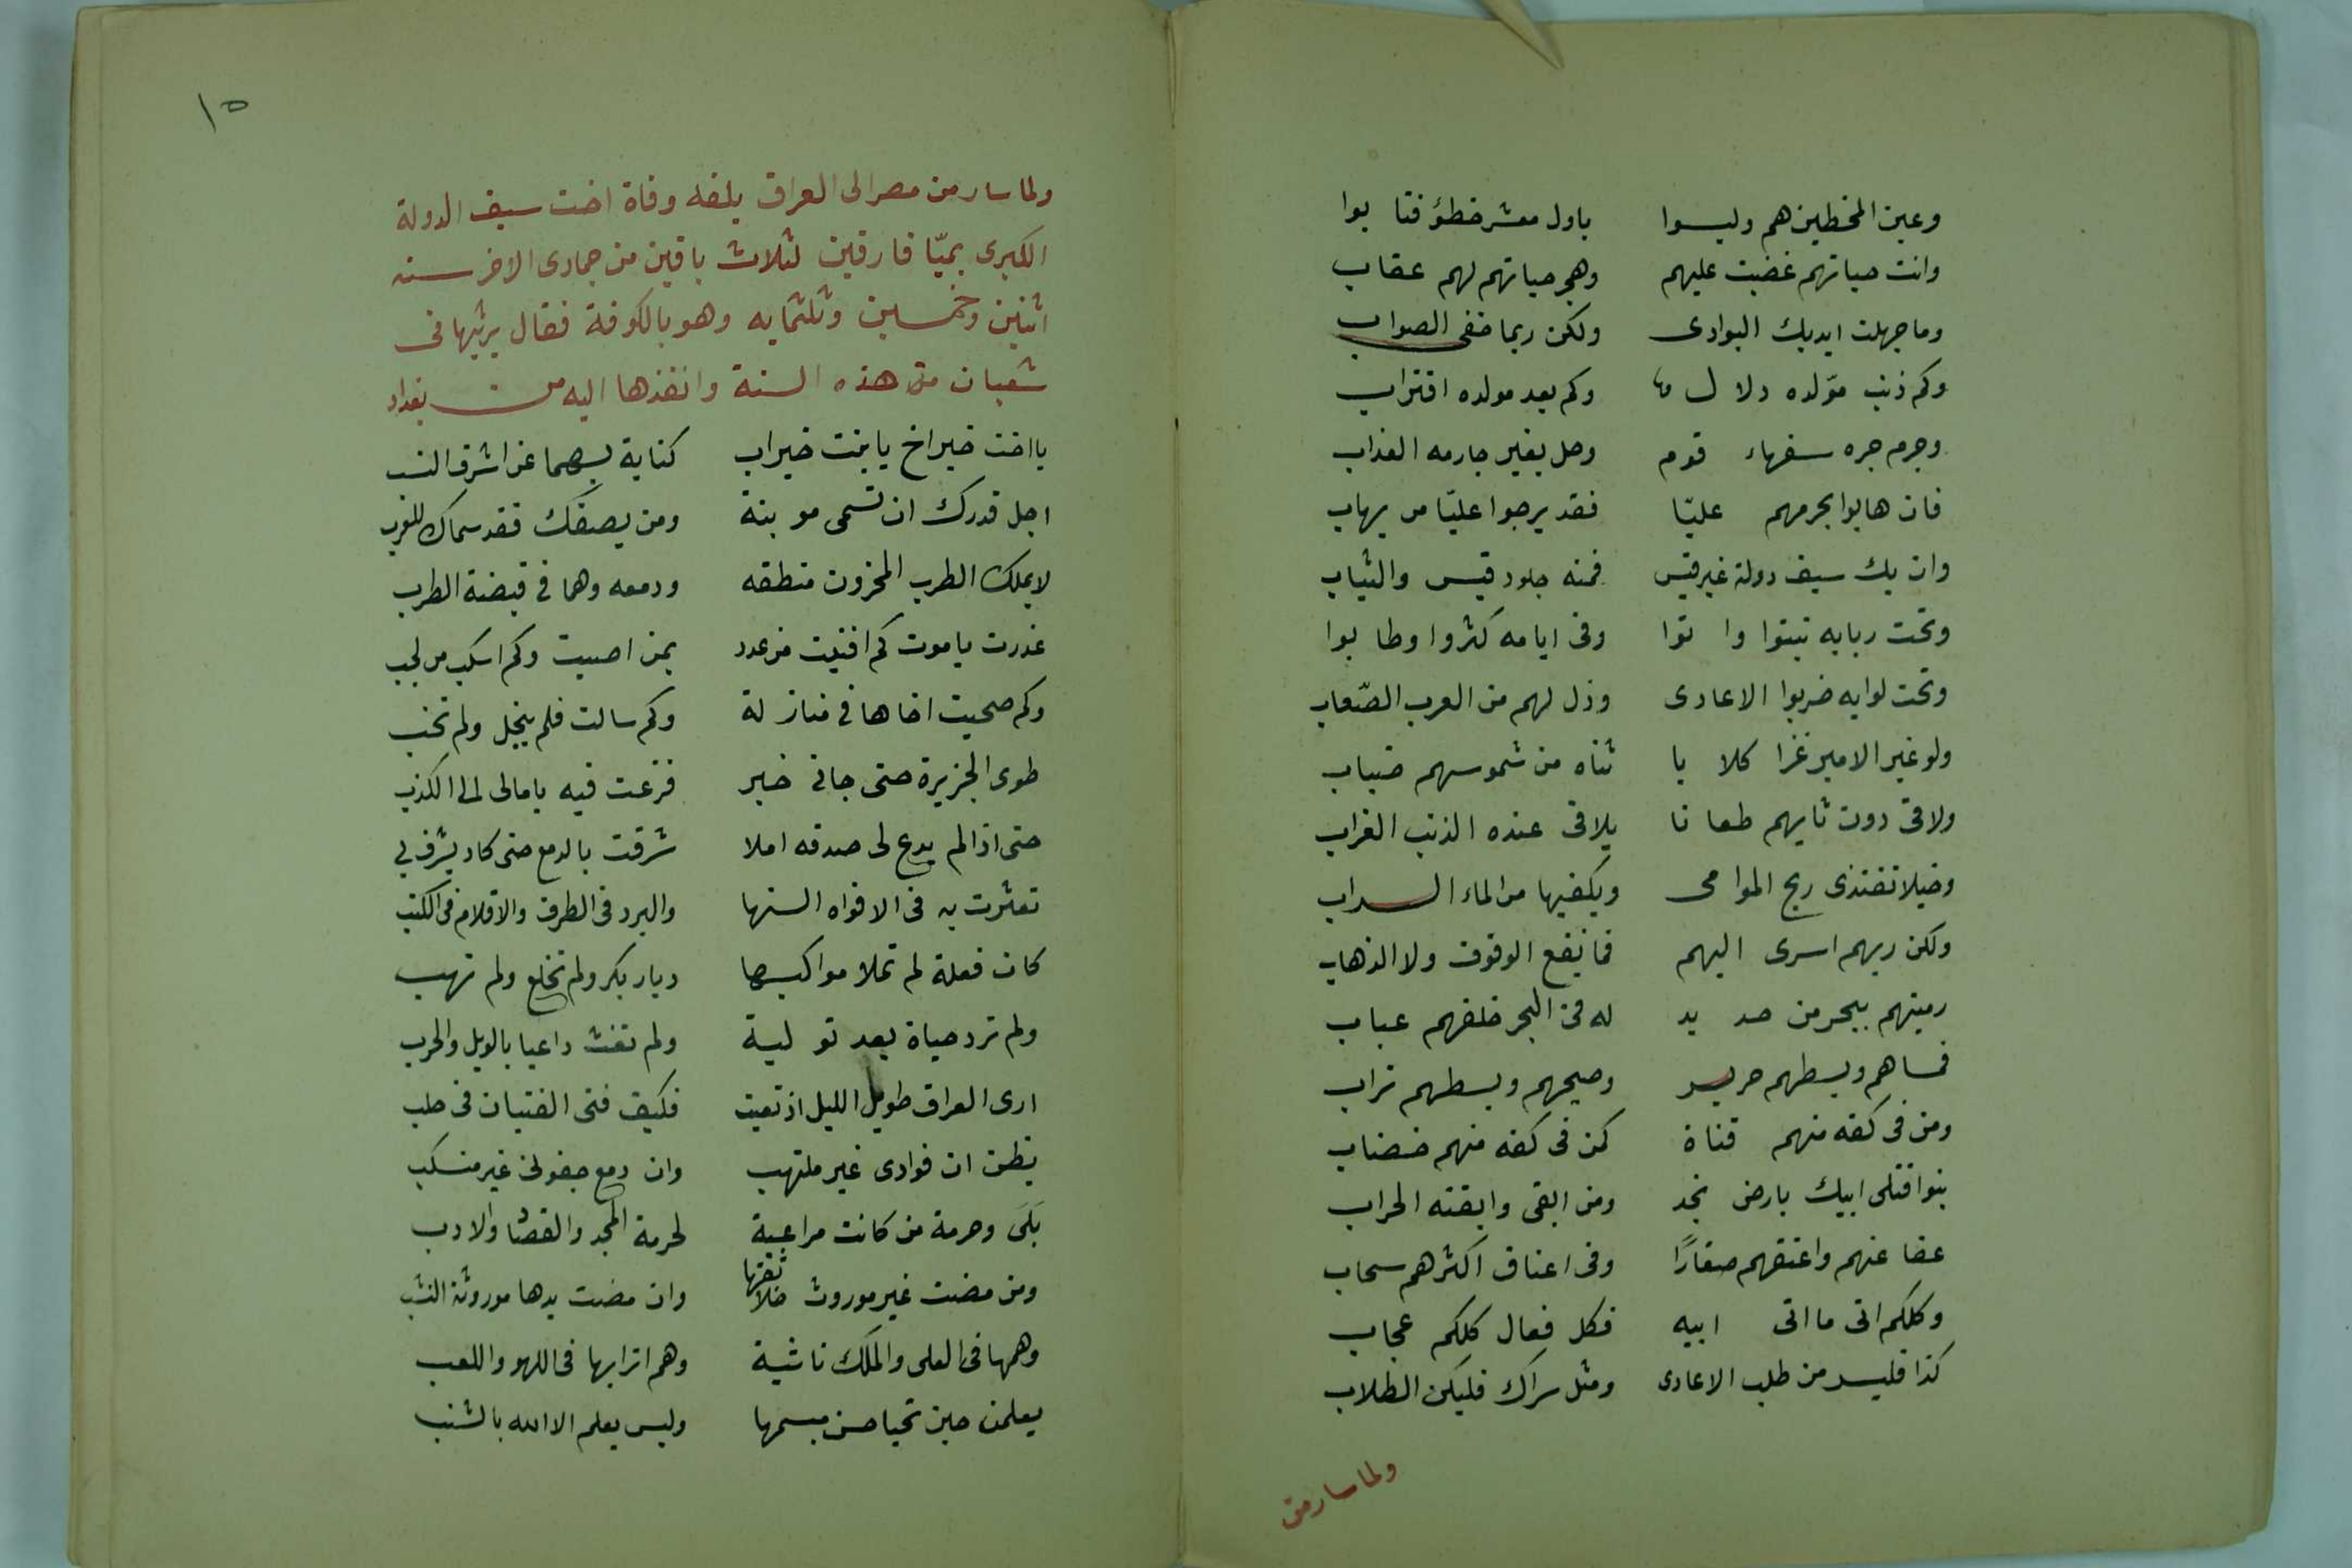 وعين المخطين هم وليسوا باول معشر خطؤ فتا بوا
وانت حياتهم غضبت عليهم وهجر حياتهم لهم عقاب
وما جهلت ايديك البوادى ولكن ربما خفى الصواب
وكم ذنب موّلده دلال وكم بعد مولده اقتراب
وجرم جره سفهاء قوم وحل بغير جارمه العذاب
فان هابوا بجرمهم عليّا فقد يرجوا عليّا من يهاب
وان يك سيف دولة غير قيس فمنه جلود قيس والثياب
وتحت ربابه نبتوا وا ثوا وفى ايامه كثروا وطا بوا
وتحت لوايه ضربوا الاعادى وذل لهم من العرب الصّعاب
ولو غير الامير غزا كلا با ثناه من شموسهم ضباب
ولاقى دون ثايهم طعا نا يلاقى عنده الذئب الغراب
وخيلا تغتذى ريح الموامى ويكفيها من الماء السراب
ولكن ربهم اسرى اليهم فما نفع الوقوف ولا الذهاب
رميتهم ببحر من حد يد له فى البحر خلفهم عباب
فمساهم وبسطهم حرير وصبحهم وبسطهم تراب
ومن فى كفه منهم قناة كمن فى كفه منهم خضاب
بنوا قتلى ابيك بارض نجد ومن ابقى وابقته الحراب
عفا عنهم واعتقهم صغارًا وفى اعناق اكثرهم سحاب
وكلكم اتى ما اتى ابيه فكل فعال كلكم عجاب
كذا فليسر من طلب الاعادى ومثل سراك فليكن الطلاب
ولما سار من
١٥
ولما سار من مصر الى العراق بلغه وفاة اخت سيف الدولة
الكبرى بميّا فارقين لثلاث باقين من جمادى الاخر سنه
اثنين وخمسين وثلثمايه وهو بالكوفة فقال يرثيها فى
شعبان من هذه السنة وانفذها اليه من بغداد
يا اخت خير اخ يا بنت خير اب كناية بهما عن اشرف النسب
اجل قدرك ان تسمى موبنة ومن يصفك فقد سماك للعرب
لا يملك الطرب المحزون منطقه ودمعه وهما فى قبضة الطرب
غدرت يا موت كم افنيت من عدد بمن اصبت وكم اسكب من لجب
وكم صحبت اخاها فى مناز لة وكم سالت فلم يبخل ولم تخب
طوى الجزيرة حتى جانى خبر فزعت فيه بامالى الى الكذب
حتى اذا لم يدع لى صدقه املا شرقت بالدمع حتى كاد يشرق بى
تعثرت به فى الافواه السنها والبرد فى الطرق والاقلام فى الكتب
كان فعلة لم تملا مواكبها ديار بكر ولم تخلع ولم تهب
ولم ترد حياة بعد تو لية ولم تغث داعيا بالويل والحرب
ارى العراق طويل الليل اذ نعيت فكيف فتى الفتيان فى حلب
يظن ان فوادى غير ملتهب وان دمع جفونى غير منسكب
بَلَى وحرمة من كانت مراعية لحرمة المجد والقصّا والادب
ومن مضت غير موروث خلائقها وان مضت يدها موروثة النشب
وهمها فى العلى والملك ناشية وهم اترابها فى اللهو واللعب
يعلمن حين تحيا حسن مبسمها وليس يعلم الا الله بالشنب